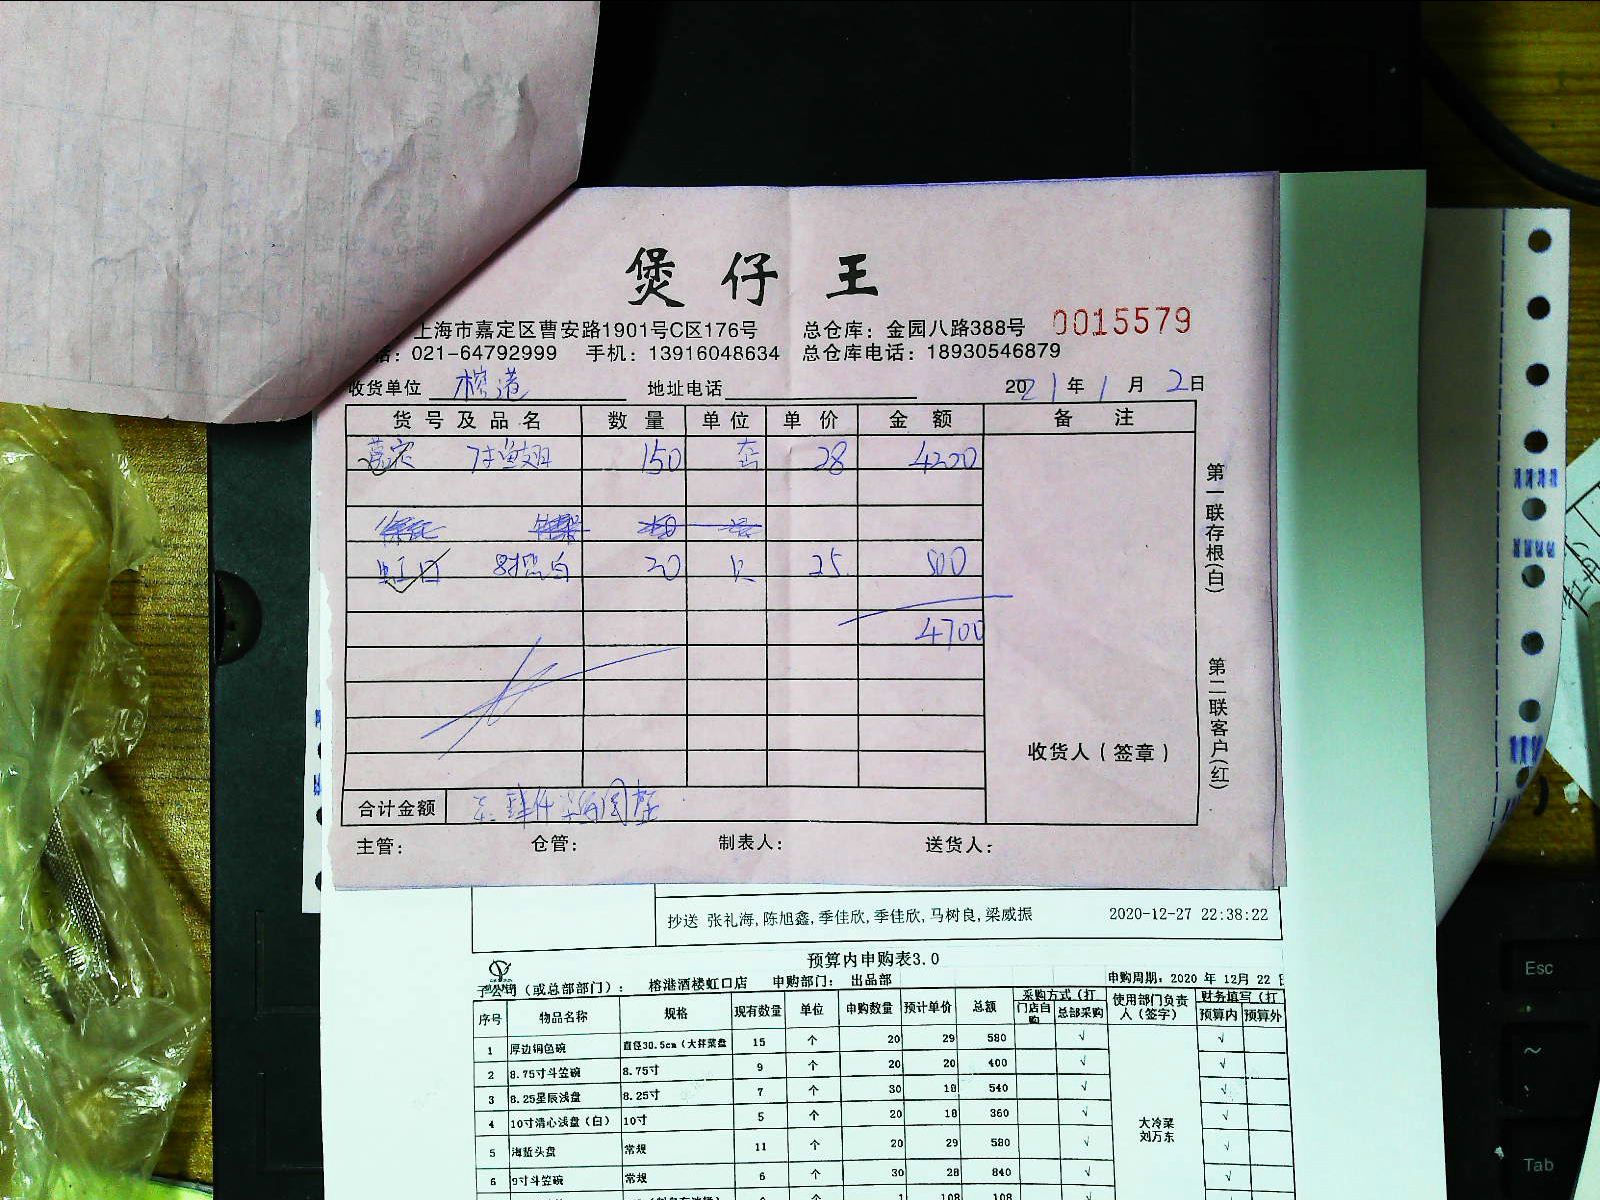 煲仔王
上海市嘉定区曹安路1901号C区176号 总仓库：金园八路388号 0015579
话：021-64792999 手机：13916048634 总仓库电话：18930546879
收货单位 榕港 地址电话 2021年1月2日
货号及品名 数量 单位 单价 金额 备注
嘉定 7寸鱼翅 150 套 28 4200
虹口 8寸 20 只 25 500
4700
第一联存根(白)
第二联客户(红)
收货人（签章）
合计金额
主管： 仓管： 制表人： 送货人：
抄送 张礼海,陈旭鑫,季佳欣,季佳欣,马树良,梁威振 2020-12-27 22:38:22
预算内申购表3.0
子公司（或总部部门）： 榕港酒楼虹口店 申购部门： 出品部 申购周期：2020 年 12月 22
序号 物品名称 规格 现有数量 单位 申购数量 预计单价 总额 采购方式（打 门店自购 总部采购 使用部门负责人（签字） 财务填写（打 预算内 预算外
1 厚边铜色碗 直径30.5cm（大拌菜盘 15 个 20 29 580 √ √
2 8.75寸斗笠碗 8.75寸 9 个 20 20 400 √ √
3 8.25星辰浅盘 8.25寸 7 个 30 18 540 √ √
4 10寸清心浅盘（白） 10寸 5 个 20 18 360 √ √
大冷菜
刘万东
5 海蜇头盘 常规 11 个 20 29 580 √ √
6 9寸斗笠碗 常规 6 个 30 28 840 √ √
个 1 108 108
Esc
~
Tab